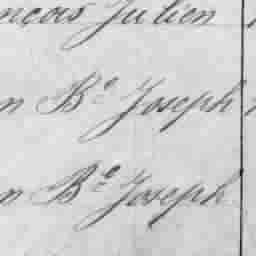 nçois Julien
n Bte Joseph
n Bte Joseph